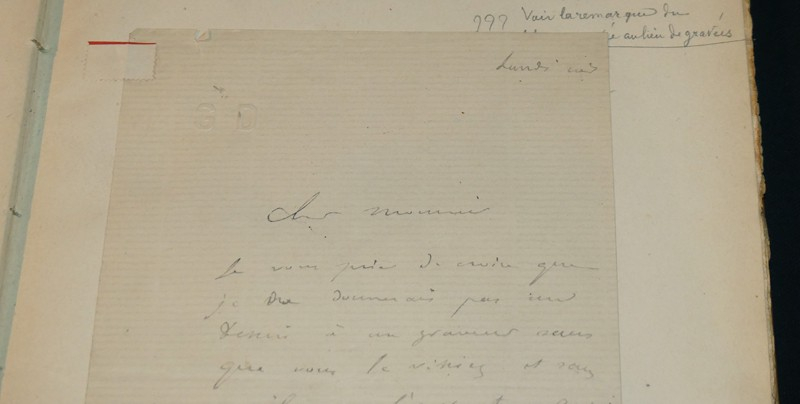 ??? Voir la remarque du
au lieu de gravées
Lundi
G D
Cher monsieur
Je vous prie de croire que
je ne donnerais pas un
dessin à un graveur sans
que vous le visiez et